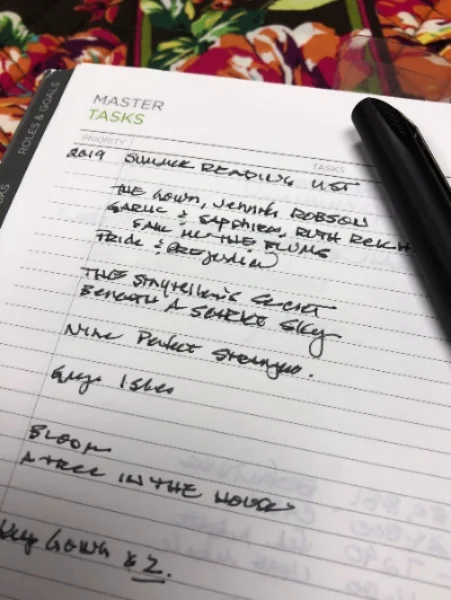 ROLES & GOALS
MASTER
TASKS
PRIORITY TASKS
2019 SUMMER READING LIST
THE GOWN, Jennifer ROBSON
GARLIC & SAPPHIRES, RUTH REICH
SAVE ME THE PLUMS
Pride & Prejudice
THE Storyteller's Secret
BENEATH A SCARLET SKY
Nine Perfect Strangers.
BLOOM
A TREE IN THE HOUSE
Key Gown x 2.